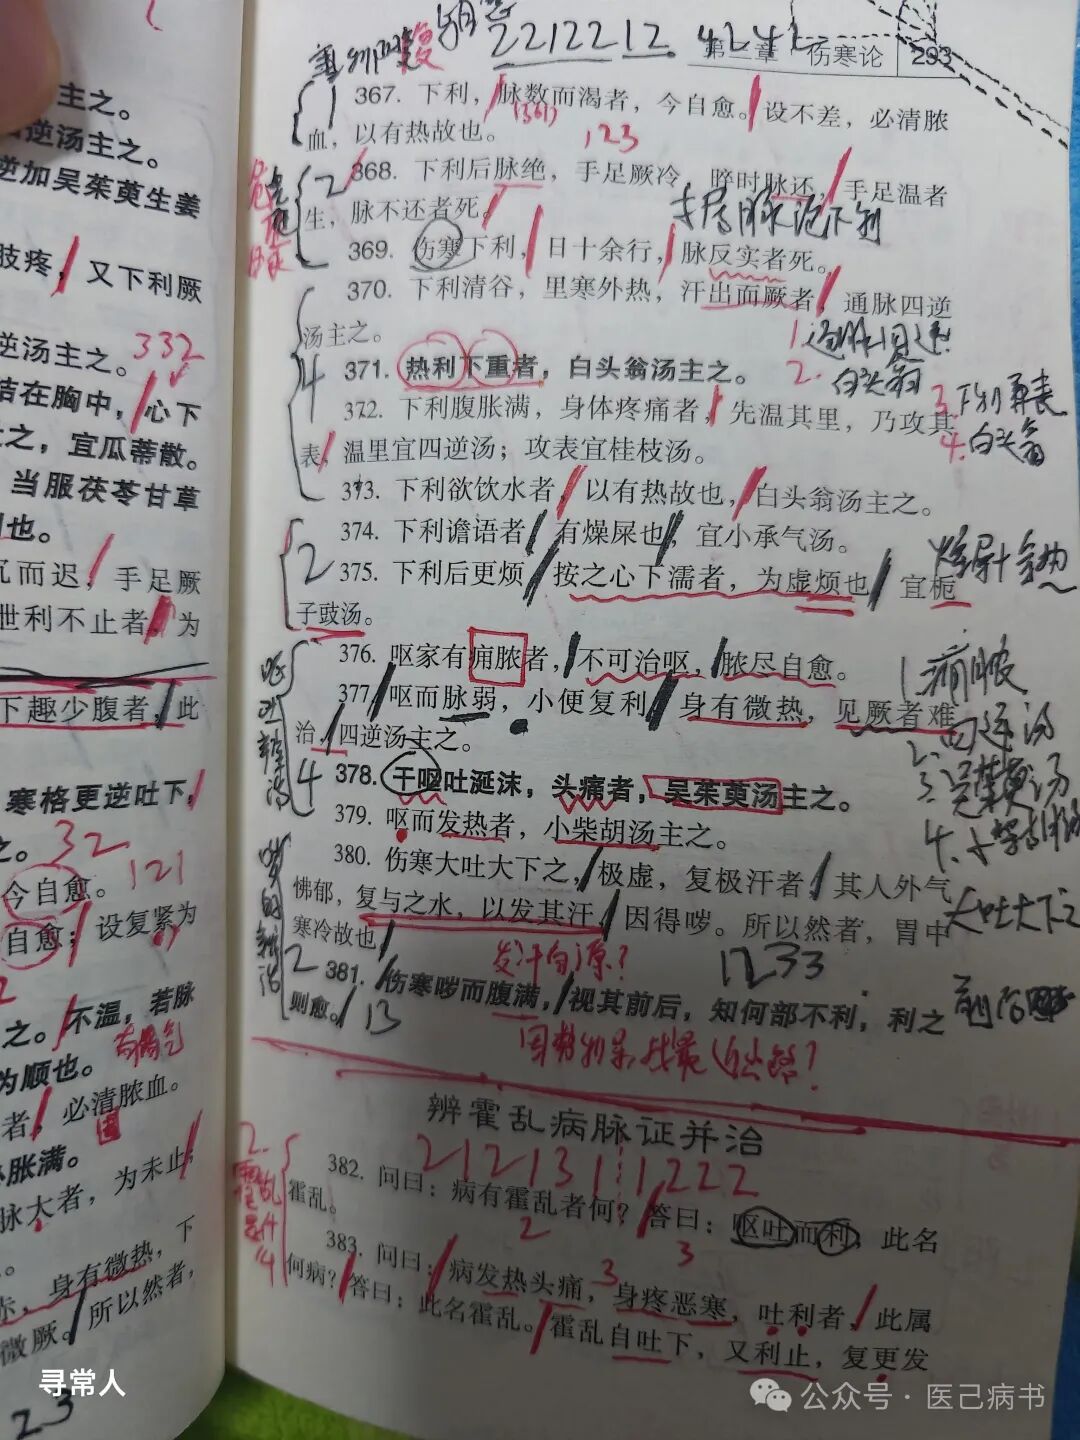 主之。
逆汤主之。
逆加吴茱萸生姜
肢疼，又下利厥
逆汤主之。332
结在胸中，心下
之，宜瓜蒂散。
当服茯苓甘草
也。
沉而迟，手足厥
泄利不止者，为
下趣少腹者，此
寒格更逆吐下，
之。32
今自愈。121
自愈；设复紧为
之。不温，若脉
为顺也。
者，必清脓血。
胀满。
脉大者，为未止；
赤，身有微热，下
微厥。所以然者，
23
寻常人
2212212 4242
第二章 伤寒论 293
367. 下利，脉数而渴者，今自愈。设不差，必清脓
血，以有热故也。
(361)
123
368. 下利后脉绝，手足厥冷，晬时脉还，手足温者
生，脉不还者死。
2
369. 伤寒下利，日十余行，脉反实者死。
370. 下利清谷，里寒外热，汗出而厥者，通脉四逆
汤主之。
1. 通脉四逆
371. 热利下重者，白头翁汤主之。
2. 白头翁
4
372. 下利腹胀满，身体疼痛者，先温其里，乃攻其
表，温里宜四逆汤；攻表宜桂枝汤。
4. 白头翁
373. 下利欲饮水者，以有热故也，白头翁汤主之。
374. 下利谵语者，有燥屎也，宜小承气汤。
2
375. 下利后更烦，按之心下濡者，为虚烦也，宜栀
子豉汤。
376. 呕家有痈脓者，不可治呕，脓尽自愈。
1. 痈脓
377. 呕而脉弱，小便复利，身有微热，见厥者难
治，四逆汤主之。
2. 四逆汤
4
378. 干呕吐涎沫，头痛者，吴茱萸汤主之。
3. 吴茱萸汤
379. 呕而发热者，小柴胡汤主之。
4. 小柴胡汤
380. 伤寒大吐大下之，极虚，复极汗者，其人外气
怫郁，复与之水，以发其汗，因得哕。所以然者，胃中
寒冷故也。
大吐大下之
2
1233
381. 伤寒哕而腹满，视其前后，知何部不利，利之
则愈。
13
辨霍乱病脉证并治
2121311222
382. 问曰：病有霍乱者何？答曰：呕吐而利，此名
霍乱。
2
383. 问曰：病发热头痛，身疼恶寒，吐利者，此属
何病？答曰：此名霍乱。霍乱自吐下，又利止，复更发
3
3
公众号·医己病书